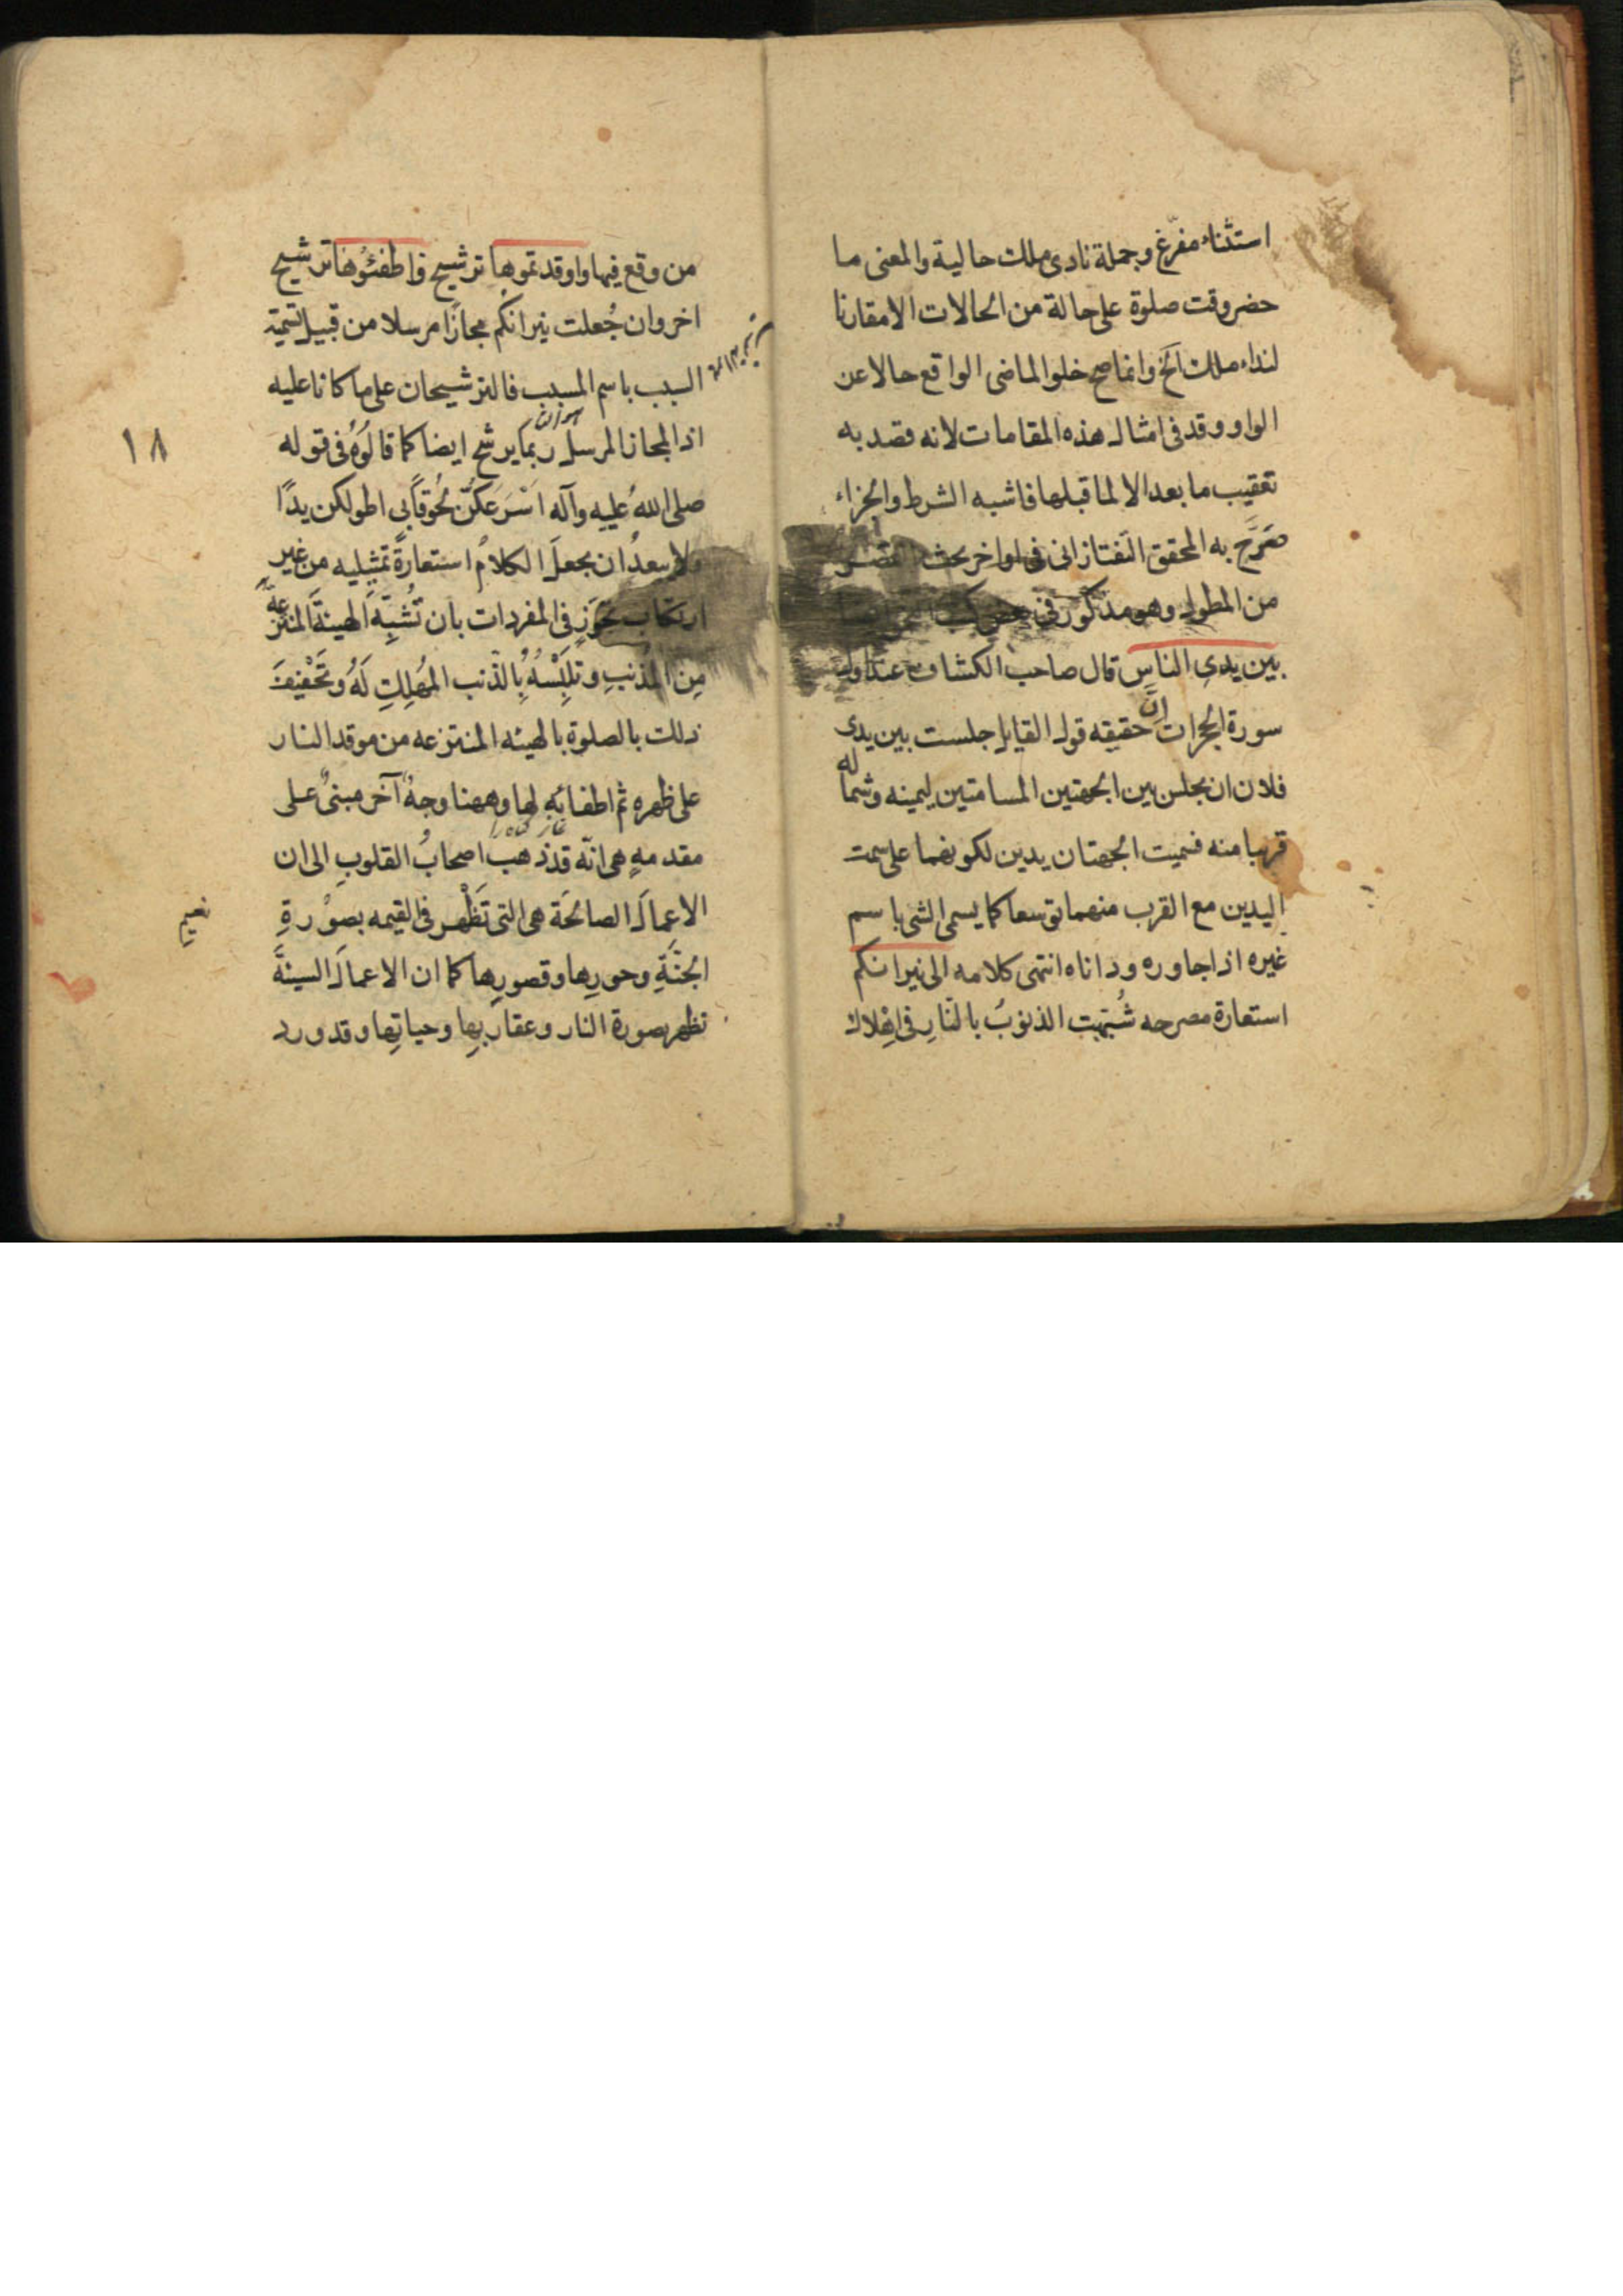 استثناء مفرّغ وجملة نادى ملك حالية والمعنى ما
حضر وقت صلوة على حالة من الحالات الا مقارنا
لنداء ملك آلخ وانما صح خلو الماضى الواقع حالا عن
الواو وقد فى امثال هذه المقامات لانه قصد به
تعقيب ما بعد الا لما قبلها فاشبه الشرط والجزاء
صَرَّح به المحقق التفتازانى فى اواخر بحث القصر
من المطول وهو مذكور فى بعض كتب النحو
بين يدى الناس قال صاحب الكشاف عند اول
سورة الحجرات انَّ حقيقه قول القايل جلست بين يدى
فلان ان يجلس بين الجهتين المسامتين ليمينه وشماله
قريبا منه فسميت الجهتان يدين لكونهما على سمت
اليدين مع القرب منهما توسعا كما يسمى الشى باسم
غيره اذا جاوره وداناه انتهى كلامه الى نيرانكم
استعارة مصرحه شُبّهت الذنوبُ بالنّارِ فى اهْلاك
من وقع فيها واوقدتموها ترشيح واطفئوُها ترشيح
اخر وان جُعلت نيرانكم مجازًا مرسلا من قبيل تسمية
السبب باسم المسبب فالترشيحان على ما كانا عليه
اذ المجاز المرسل ربما يرشح ايضا كما قالوُهُ فى قوله
صلى اللهُ عليه وآله اسْرَعَكُنّ لحُوقًا بى اطولكن يدًا
ولا يبعدُ ان يجعلَ الكلامُ استعارةً تمثيليه من غير
ارتكاب تجوّزٍ فى المفردات بان تُشبّهَ الهيئةَ المنتزعةَ
مِن المُذنبِ وتلبّسهُ بِالذّنب المُهلكِ لَهُ وتَخْفيفَ
ذلك بالصلوة بالهيئه المنتزعه من موقد النار
على ظهرهِ ثم اطفائهِ لها وههنا وجهٌ آخر مبنىٌ على
مقدمهٍ هى انّه قد ذهب اصحابُ القلوبِ الى ان
الاعمالَ الصالحَة هى التى تَظْهر فى القيمه بصوْرةِ
نعيم
الجنَّةِ وحورِها وقصورِها كما ان الاعمالَ السيئةَ
تظهر بصورة النار وعقاربِها وحياتِها وقد ورد
١٨